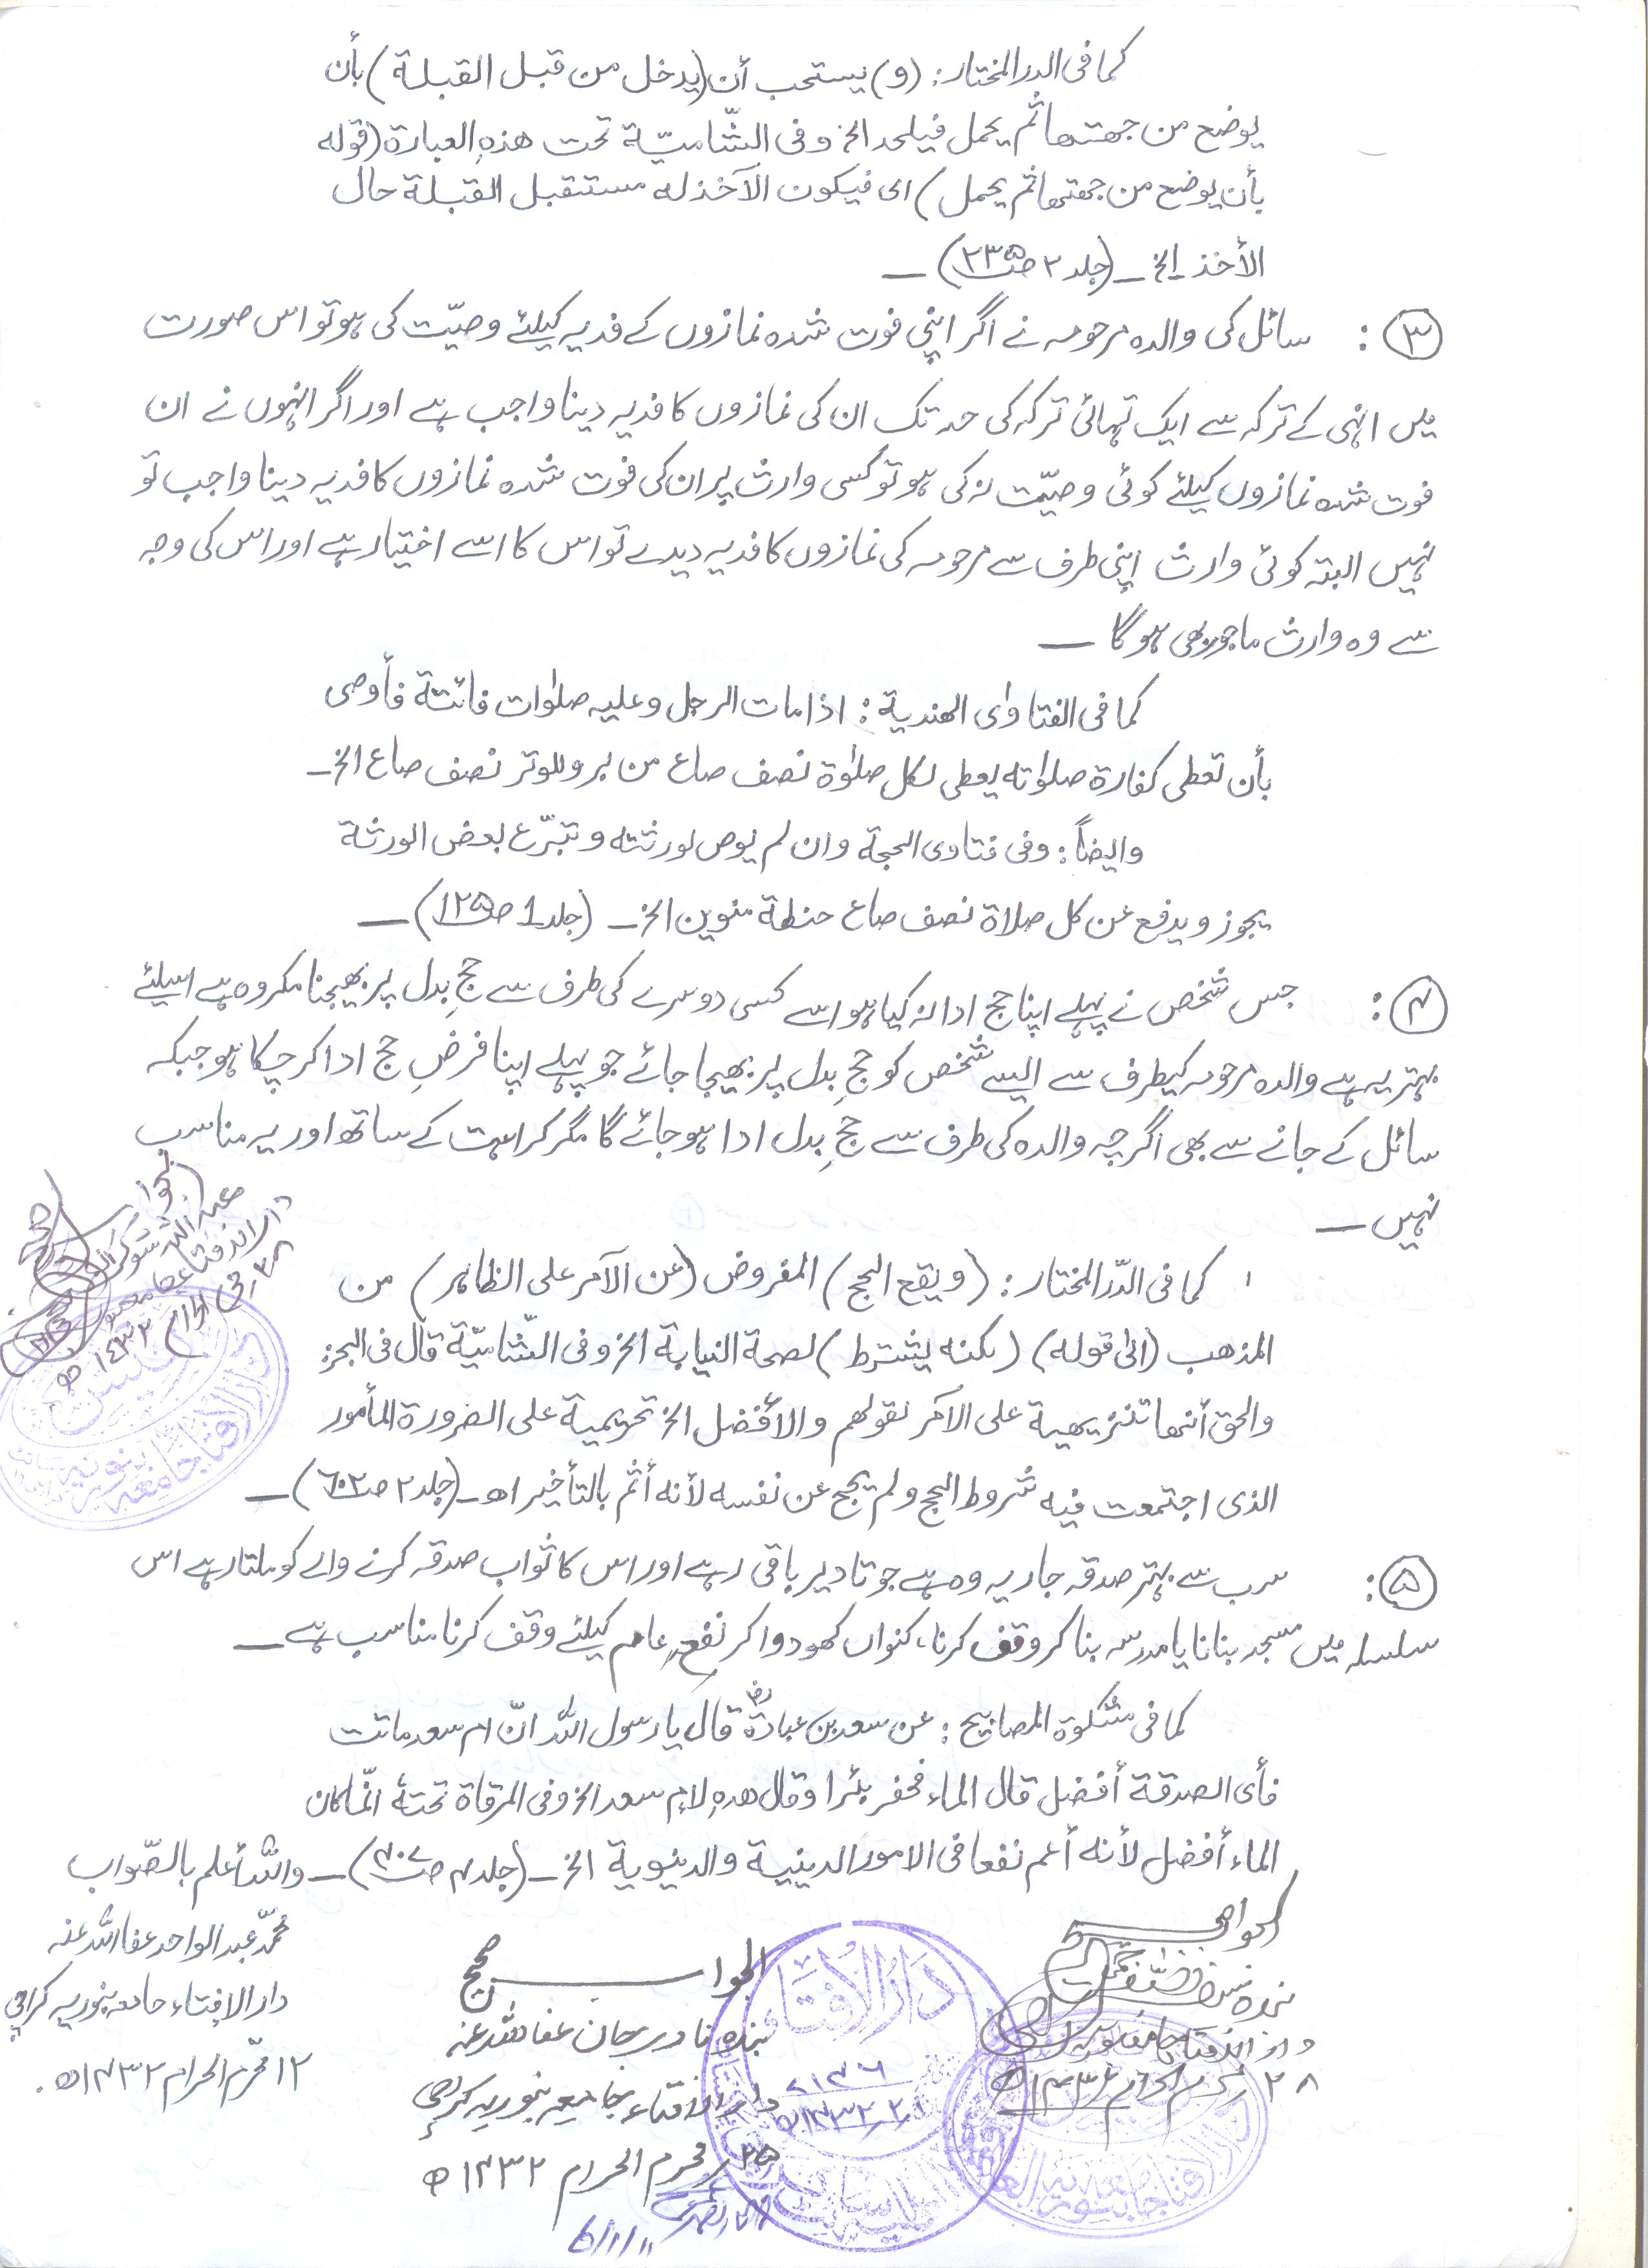 کما فی الدر المختار: (و) یستحب أن (یدخل من قبل القبلة) بأن
یوضع من جهتها ثم یحمل فیلحد الخ وفی الشّامیّة تحت هذهِ العبارة (قوله
بأن یوضع من جهتها ثم یحمل) ای فیکون الآخذ له مستقبل القبلة حال
الأخذ الخ ـ (جلد ۲ صـ۲۳۵) ـ
۳: سائل کی والدہ مرحومہ نے اگر اپنی فوت شدہ نمازوں کے فدیہ کیلئے وصیّت کی ہو تو اس صورت
میں انہی کے ترکہ سے ایک تہائی ترکہ کی حد تک ان کی نمازوں کا فدیہ دینا واجب ہے اور اگر انہوں نے ان
فوت شدہ نمازوں کیلئے کوئی وصیّت نہ کی ہو تو کسی وارث پر ان کی فوت شدہ نمازوں کا فدیہ دینا واجب تو
نہیں البتہ کوئی وارث اپنی طرف سے مرحومہ کی نمازوں کا فدیہ دیدے تو اس کا اسے اختیار ہے اور اس کی وجہ
سے وہ وارث ماجور بھی ہو گا ـ
کما فی الفتاوٰی الهندیة: اذا مات الرجل وعلیه صلوٰات فائتة فأوصی
بأن تعطی کفارة صلوٰاته یعطی لکل صلوٰة نصف صاع من بر وللوتر نصف صاع الخ ـ
وایضاً: وفی فتاوی الحجة وان لم یوص لورثته وتبرّع بعض الورثة
یجوز ویدفع عن کل صلاة نصف صاع حنطة منوین الخ ـ (جلد 1 صـ۱۲۵) ـ
۴: جس شخص نے پہلے اپنا حج ادا نہ کیا ہو اسے کسی دوسرے کی طرف سے حجِ بدل پر بھیجنا مکروہ ہے اسلئے
بہتر یہ ہے والدہ مرحومہ کیطرف سے ایسے شخص کو حجِ بدل پر بھیجا جائے جو پہلے اپنا فرضِ حج ادا کر چکا ہو جبکہ
سائل کے جانے سے بھی اگرچہ والدہ کی طرف سے حجِ بدل ادا ہو جائے گا مگر کراہت کے ساتھ اور یہ مناسب
نہیں ـ
کما فی الدّر المختار: (ویقع الحج) المفروض (عن الآمر علی الظاهر) من
المذهب (الیٰ قوله) (لکنه یشترط) لصحة النیابة الخ وفی الشّامیّة قال فی البحر:
والحق أنها تنزیهیة علی الآمر لقولهم والأفضل الخ تحریمیة علی الصرورة المأمور
الذی اجتمعت فیه شروط الحج ولم یحج عن نفسه لأنه أثم بالتأخیر اھ ـ (جلد ۲ صـ۶۰۳) ـ
۵: سب سے بہتر صدقہ جاریہ وہ ہے جو تا دیر باقی رہے اور اس کا ثواب صدقہ کرنے والے کو ملتا رہے اس
سلسلہ میں مسجد بنانا یا مدرسہ بنا کر وقف کرنا، کنواں کھودوا کر نفعِ عام کیلئے وقف کرنا مناسب ہے ـ
کما فی مشکوٰة المصابیح: عن سعد بن عبادةؓ قال یا رسول اللہ انّ ام سعد ماتت
فأی الصدقة أفضل قال الماء فحفر بئرا وقال هذهِ لامِ سعد الخ وفی المرقاة تحتهٗ انّما کان
الماء أفضل لأنه أعم نفعا فی الامور الدینیة والدنیویة الخ ـ (جلد ۴ صـ۴۰۷) ـ واللہ أعلم بالصّواب
محمّد عبد الواحد عفا اللہ عنہ
دار الافتاء جامعہ بنوریہ کراچی
۱۲ محرّم الحرام ۱۴۳۲ھ
الجواب صحیح
بندہ نادر جان عفا اللہ عنہ
دار الافتاء جامعہ بنوریہ کراچی
۲۵ محرم الحرام ۱۴۳۲ھ
الجواب
دار الافتاء جامعہ بنوریہ کراچی
۲۸ محرم الحرام ۱۴۳۲ھ
دار الافتاء
الجواب صحیح
دار الافتاء جامعہ بنوریہ